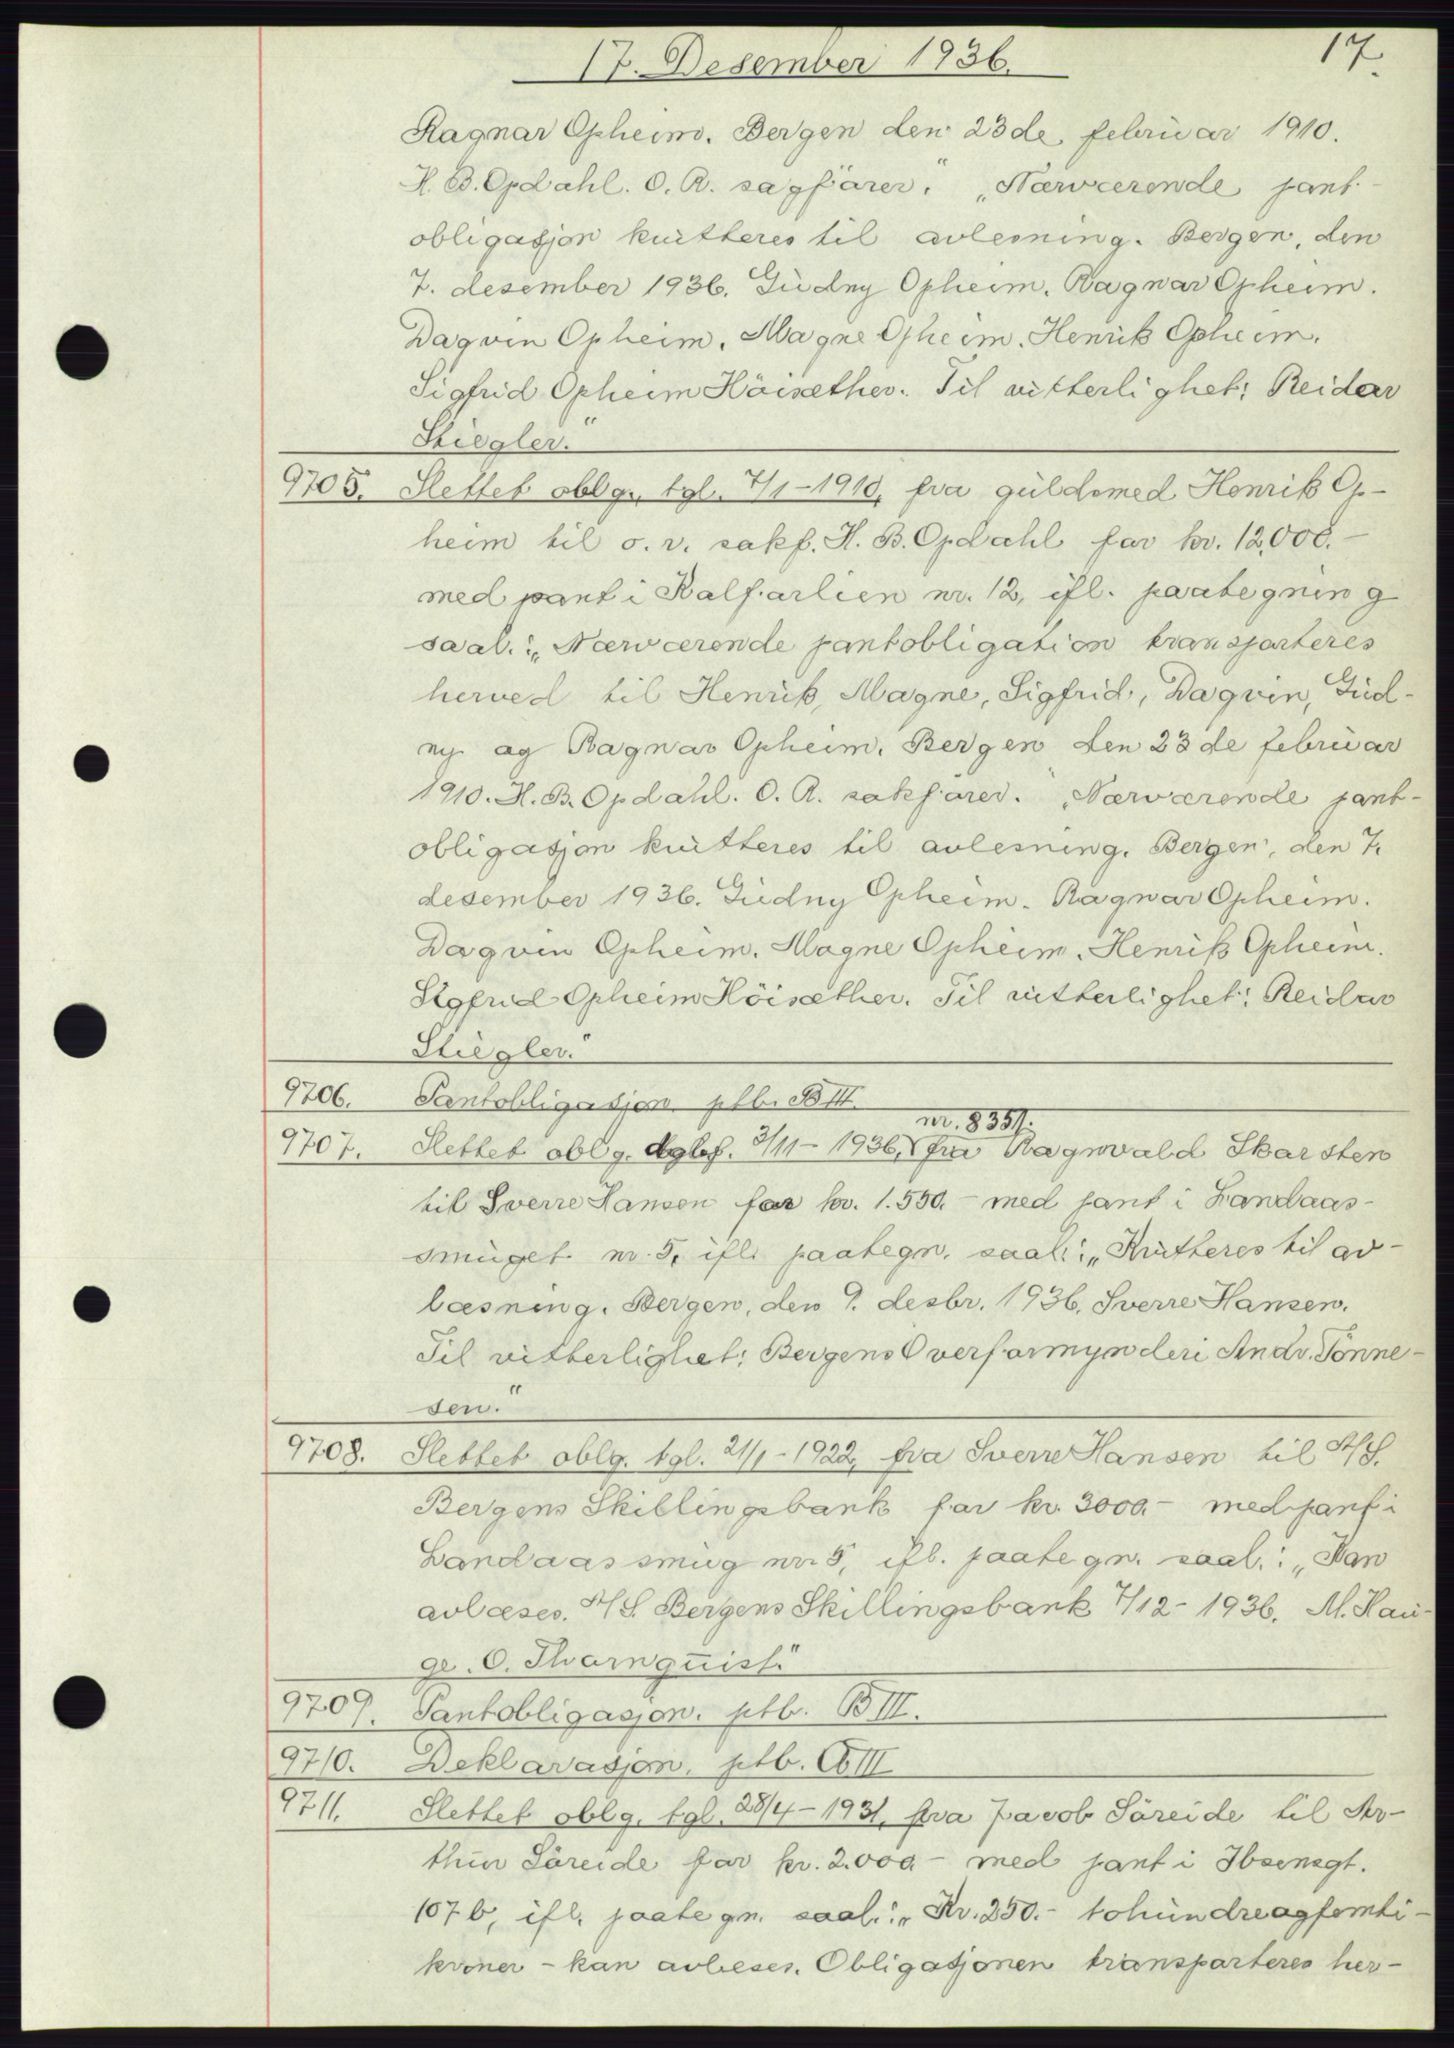 17. Desember 1936.
17.
Ragnar Opheim. Bergen den 23de februar 1910.
H. B. Opdahl. O. R. sagförer." „Nærværende pant-
obligasjon kvitteres til avlesning. Bergen, den
7. desember 1936. Gudny Opheim. Ragnar Opheim.
Dagvin Opheim. Magne Opheim. Henrik Opheim.
Sigfrid Opheim Höisæther. Til vitterlighet: Reidar
Stiegler."
9705. Slettet oblg. tgl. 7/1-1910, fra guldsmed Henrik Op-
heim til o. r. sakf. H. B. Opdahl for kr. 12,000.-
med pant i Kalfarlien nr. 12, ifl. paategning
saal.: „Nærværende pantobligation transporteres
herved til Henrik, Magne, Sigfrid, Dagvin, Gud-
ny og Ragnar Opheim. Bergen den 23de februar
1910. H. B. Opdahl. O. R. sakförer." „Nærværende pant-
obligasjon kvitteres til avlesning. Bergen, den 7.
desember 1936. Gudny Opheim. Ragnar Opheim.
Dagvin Opheim. Magne Opheim. Henrik Opheim.
Sigfrid Opheim Höisæther. Til vitterlighet: Reidar
Stiegler."
9706. Pantobligasjon. ptb. B III.
nr. 8351.
9707. Slettet oblg. dgbf. 3/11-1936, fra Ragnvald Skarsten
til Sverre Hansen for kr. 1.550.- med pant i Landaas-
smuget nr. 5, ifl. paategn. saal.: „Kvitteres til av-
læsning. Bergen, den 9. desbr. 1936. Sverre Hansen.
Til vitterlighet: Bergens Overformynderi Andr. Tönne-
sen."
9708. Slettet oblg. tgl. 21/1-1922, fra Sverre Hansen til A/S.
Bergens Skillingsbank for kr. 3000.- med pant i
Landaassmug nr. 5, ifl. paategn. saal.: „Kan
avlæses. A/S. Bergens Skillingsbank 7/12-1936. M. Hau-
ge. O. Thornquist."
9709. Pantobligasjon. ptb. B III.
9710. Deklarasjon. ptb. B III
9711. Slettet oblg. tgl. 28/4-1931, fra Jacob Söreide til Ar-
thur Söreide for kr. 2.000.- med pant i Ibsensgt.
107 b, ifl. paategn. saal.: „Kr. 250.- tohundreogfemti-
kroner - kan avleses. Obligasjonen transporteres her-